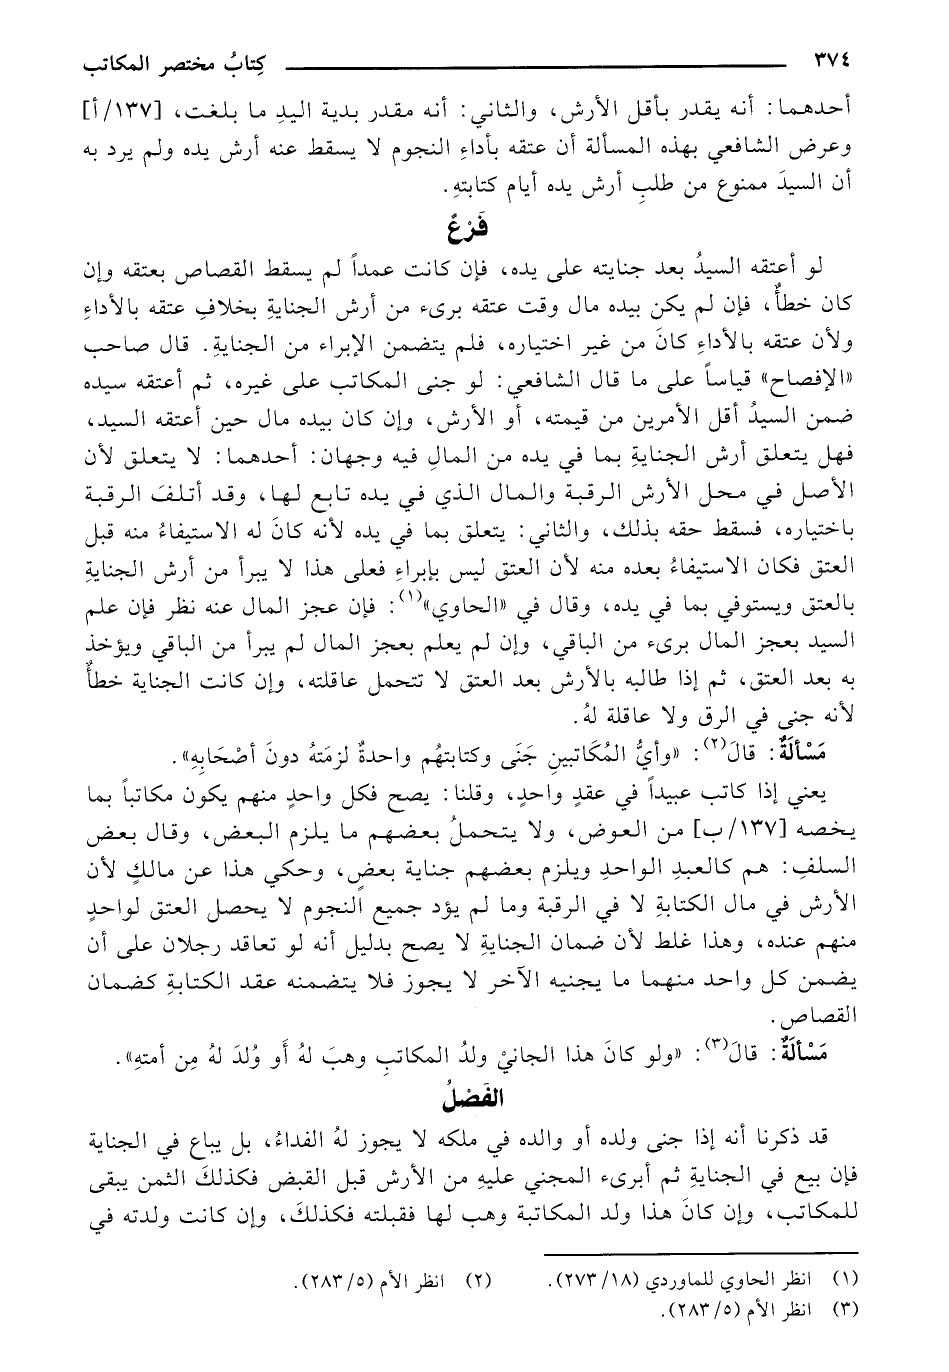 ٣٧٤ كِتابُ مختصر المكاتب
أحدهما: أنه يقدر بأقل الأرش، والثاني: أنه مقدر بدية اليدِ ما بلغت، [١٣٧/ أ]
وعرض الشافعي بهذه المسألة أن عتقه بأداءِ النجوم لا يسقط عنه أرش يده ولم يرد به
أن السيدَ ممنوع من طلبِ أرش يده أيام كتابتهِ.
فَرْعٌ
لو أعتقه السيدُ بعد جنايته على يده، فإن كانت عمداً لم يسقط القصاص بعتقه وإن
كان خطأً، فإن لم يكن بيده مال وقت عتقه برىء من أرش الجنايةِ بخلافِ عتقه بالأداءِ
ولأن عتقه بالأداءِ كانَ من غير اختياره، فلم يتضمن الإبراء من الجنايةِ. قال صاحب
«الإفصاح» قياساً على ما قال الشافعي: لو جنى المكاتب على غيره، ثم أعتقه سيده
ضمن السيدُ أقل الأمرين من قيمته، أو الأرش، وإن كان بيده مال حين أعتقه السيد،
فهل يتعلق أرش الجنايةِ بما في يده من المالِ فيه وجهان: أحدهما: لا يتعلق لأن
الأصل في محل الأرش الرقبة والمال الذي في يده تابع لها، وقد أتلفَ الرقبة
باختياره، فسقط حقه بذلك، والثاني: يتعلق بما في يده لأنه كانَ له الاستيفاءُ منه قبل
العتق فكان الاستيفاءُ بعده منه لأن العتق ليس بإبراءٍ فعلى هذا لا يبرأ من أرش الجنايةِ
بالعتق ويستوفي بما في يده، وقال في «الحاوي»(١): فإن عجز المال عنه نظر فإن علم
السيد بعجز المال برىء من الباقي، وإن لم يعلم بعجز المال لم يبرأ من الباقي ويؤخذ
به بعد العتق، ثم إذا طالبه بالأرش بعد العتق لا تتحمل عاقلته، وإن كانت الجناية خطأً
لأنه جنى في الرق ولا عاقلة لهُ.
مَسْأَلَةٌ: قالَ(٢): «وأيُّ المُكَاتبينِ جَنَى وكتابتهُم واحدةٌ لزمَتهُ دونَ أصْحَابِهِ».
يعني إذا كاتب عبيداً في عقدٍ واحدٍ، وقلنا: يصح فكل واحدٍ منهم يكون مكاتباً بما
يخصه [١٣٧/ ب] من العوض، ولا يتحملُ بعضهم ما يلزم البعض، وقال بعض
السلفِ: هم كالعبدِ الواحدِ ويلزم بعضهم جناية بعضٍ، وحكي هذا عن مالكٍ لأن
الأرش في مال الكتابةِ لا في الرقبة وما لم يؤد جميع النجوم لا يحصل العتق لواحدٍ
منهم عنده، وهذا غلط لأن ضمان الجنايةِ لا يصح بدليل أنه لو تعاقد رجلان على أن
يضمن كل واحد منهما ما يجنيه الآخر لا يجوز فلا يتضمنه عقد الكتابةِ كضمان
القصاص.
مَسْأَلَةٌ: قالَ(٣): «ولو كانَ هذا الجانيْ ولدُ المكاتبِ وهبَ لهُ أَو وُلدَ لهُ مِن أمتهِ».
الفَصْلُ
قد ذكرنا أنه إذا جنى ولده أو والده في ملكه لا يجوز لهُ الفداءُ، بل يباع في الجناية
فإن بيع في الجنايةِ ثم أبرىء المجني عليهِ من الأرش قبل القبض فكذلكَ الثمن يبقى
للمكاتب، وإن كانَ هذا ولد المكاتبة وهب لها فقبلته فكذلكَ، وإن كانت ولدته في
(١) انظر الحاوي للماوردي (٢٧٣/١٨). (٢) انظر الأم (٢٨٣/٥).
(٣) انظر الأم (٢٨٣/٥).